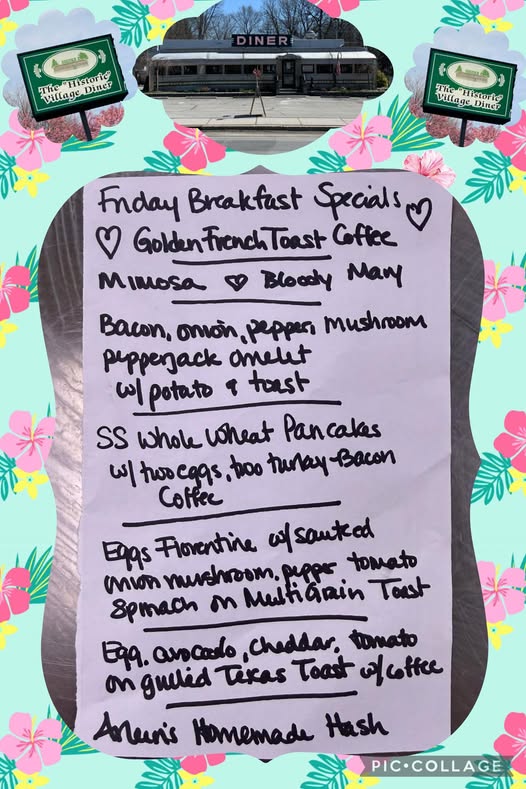 The "Historic"
Village Diner
DINER
The "Historic"
Village Diner
Friday Breakfast Specials
Golden French Toast Coffee
Mimosa Bloody Mary
Bacon, onion, pepper, mushroom
pepperjack omelet
w/ potato & toast
SS Whole Wheat Pancakes
w/ two eggs, two turkey-Bacon
Coffee
Eggs Florentine w/ sauteed
onion mushroom, pepper tomato
spinach on Multi Grain Toast
Egg, avocado, cheddar, tomato
on grilled Texas Toast w/ coffee
Arleen's Homemade Hash
PIC•COLLAGE